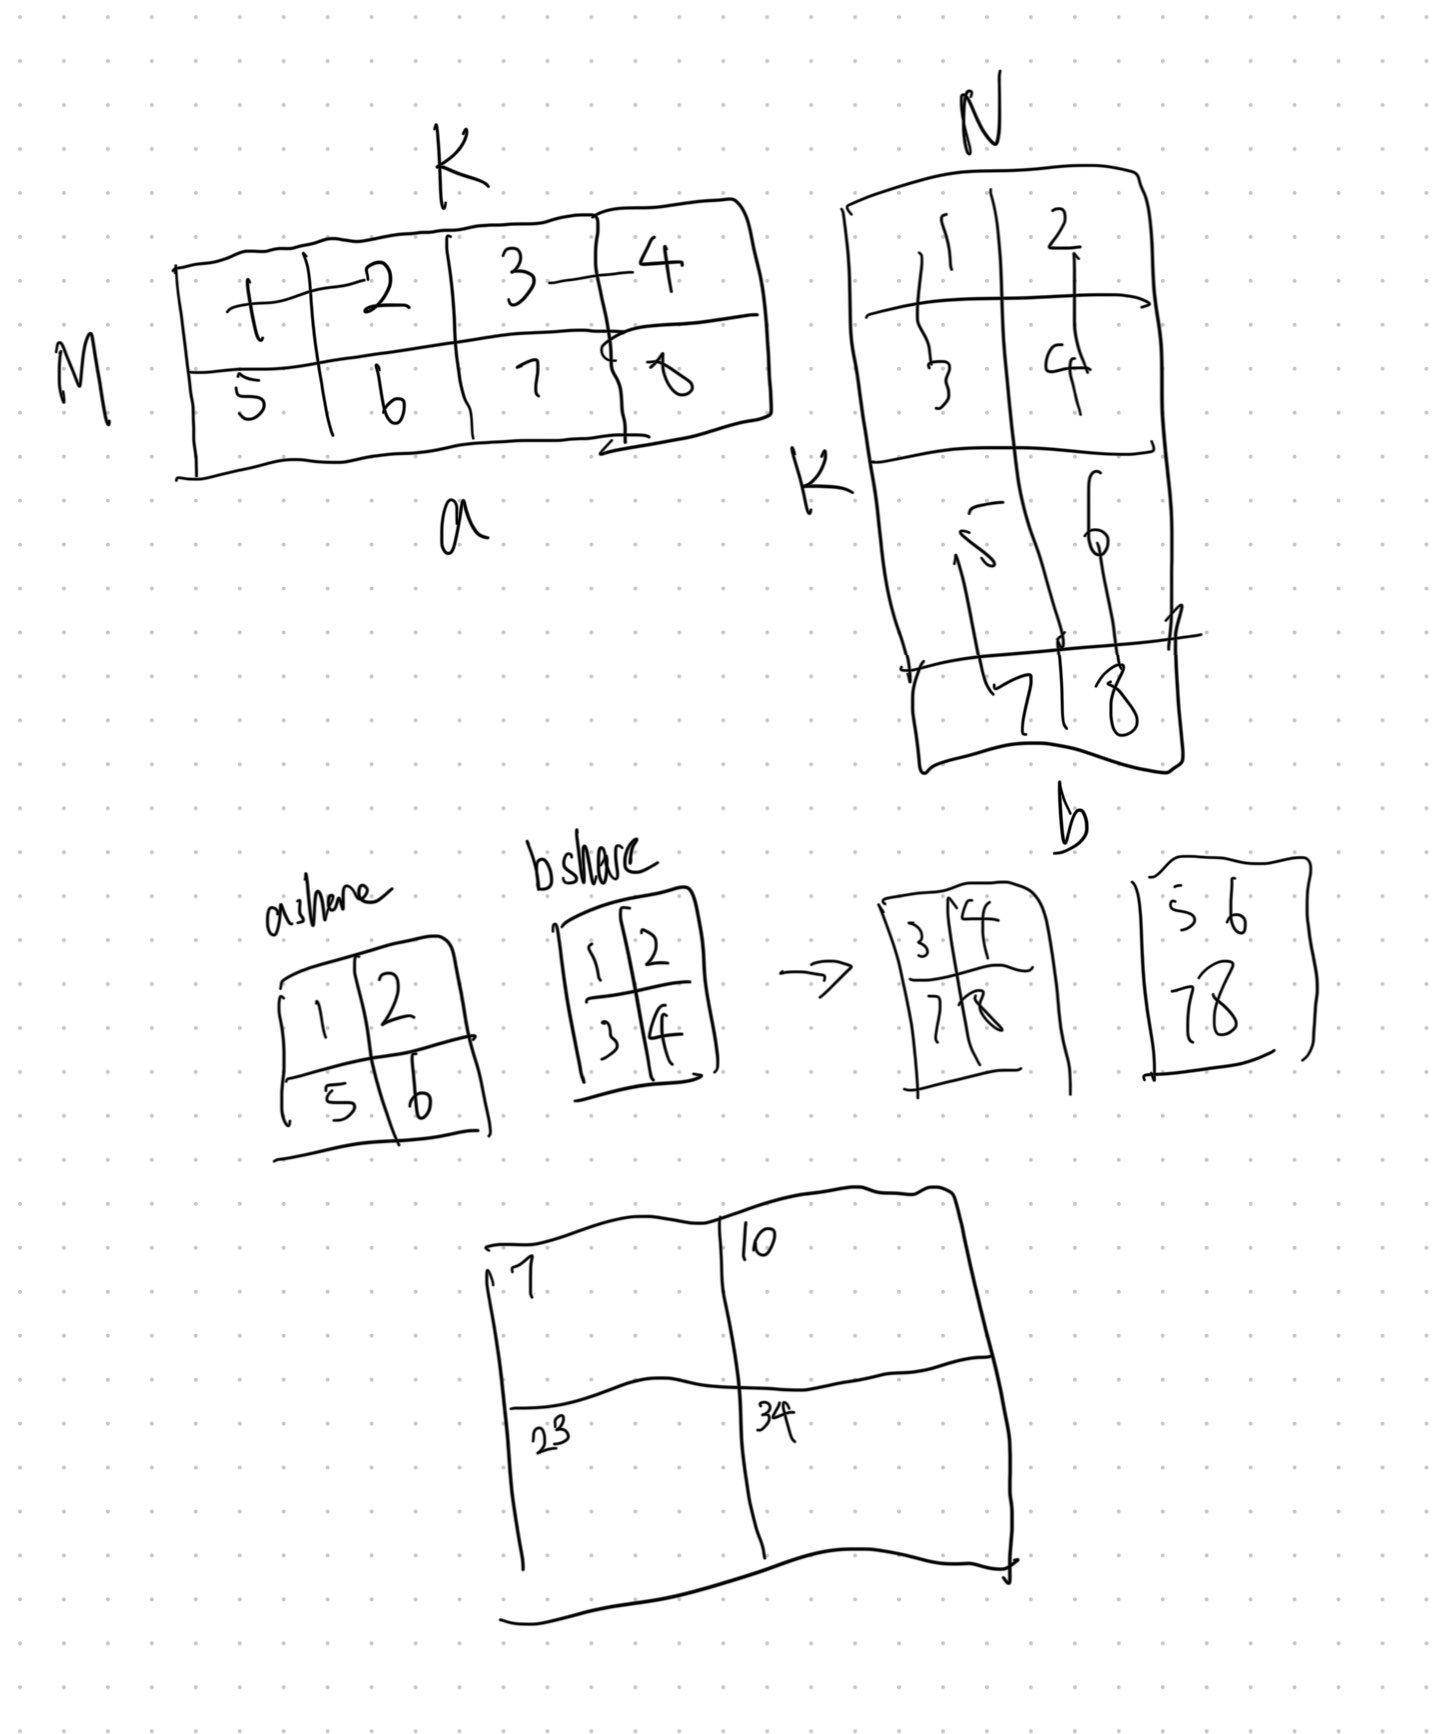 K
M
1 2 3 4
5 6 7 8
a
N
K
1 2
3 4
5 6
7 8
b
ashare
1 2
5 6
bshare
1 2
3 4
→
3 4
7 8
5 6
7 8
7 10
23 34